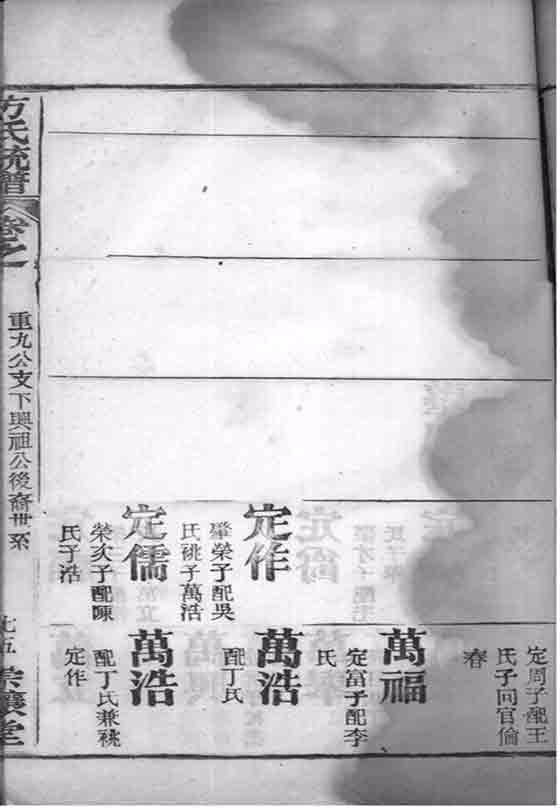 定周子配王
氏子同官倫
春
定作
肇榮子配吳
氏祧子萬浩
定儒
榮次子配陳
氏子浩
萬福
定富子配李
氏
萬浩
配丁氏
萬浩
配丁氏兼祧
定作
方氏統譜
卷之
重九公支下興祖公後裔世系
七五